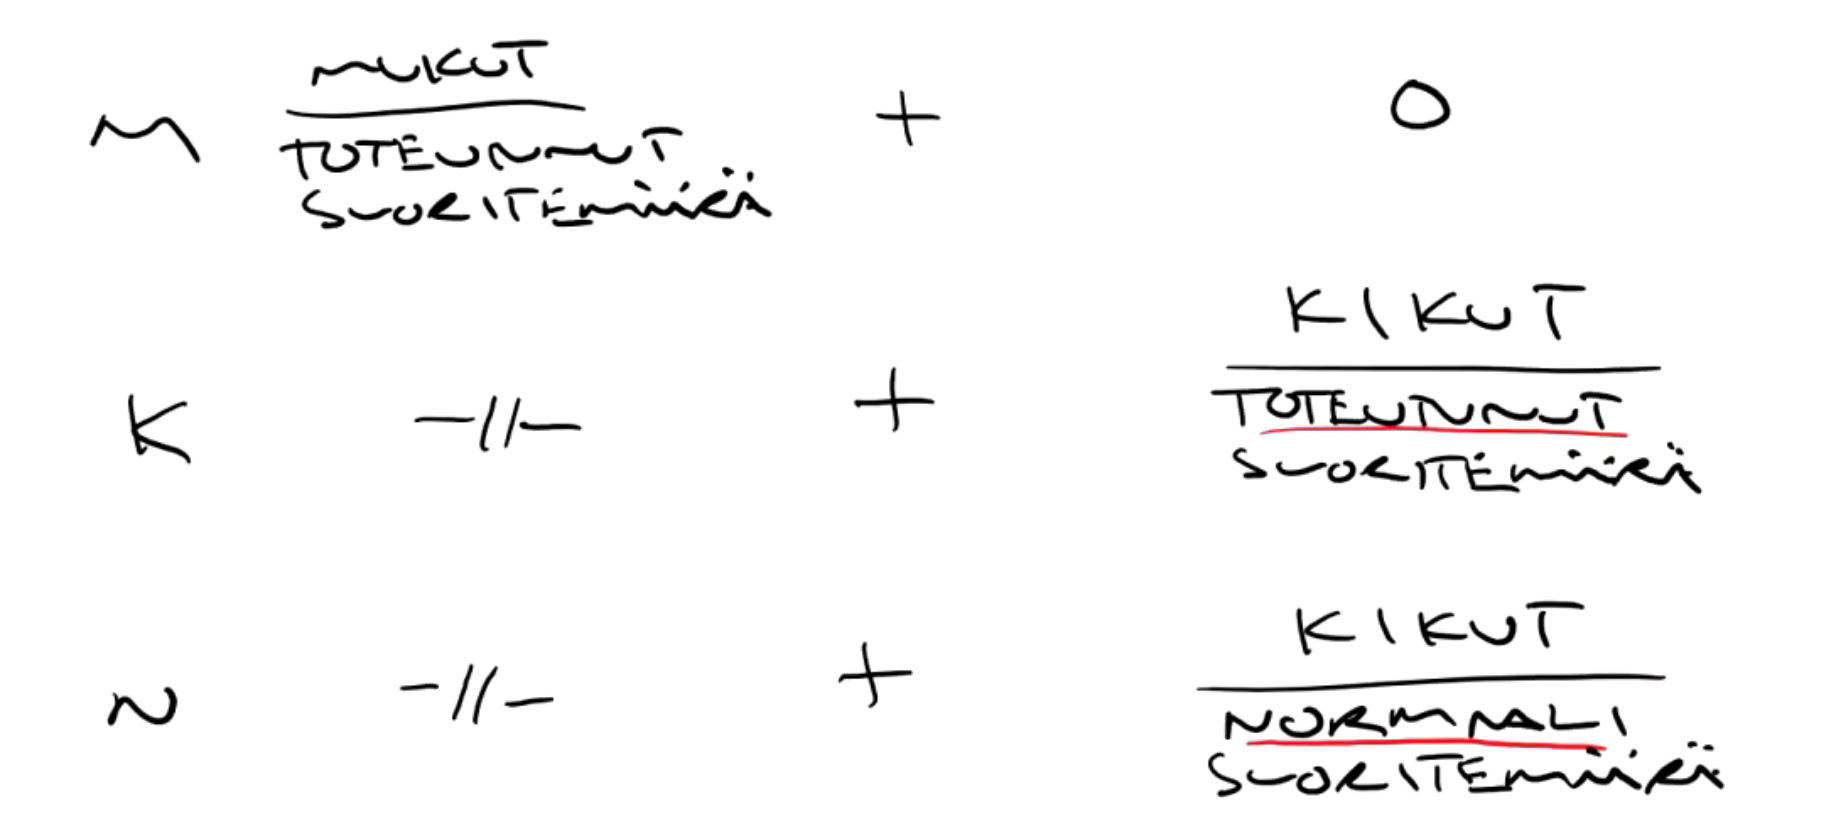 MUKUT
M + 0
TOTEUNNUT
SUORITEMÄÄRÄ
KIKUT
K -//- +
TOTEUTUNNUT
SUORITEMÄÄRÄ
KIKUT
N -//- +
NORMAALI
SUORITEMÄÄRÄ